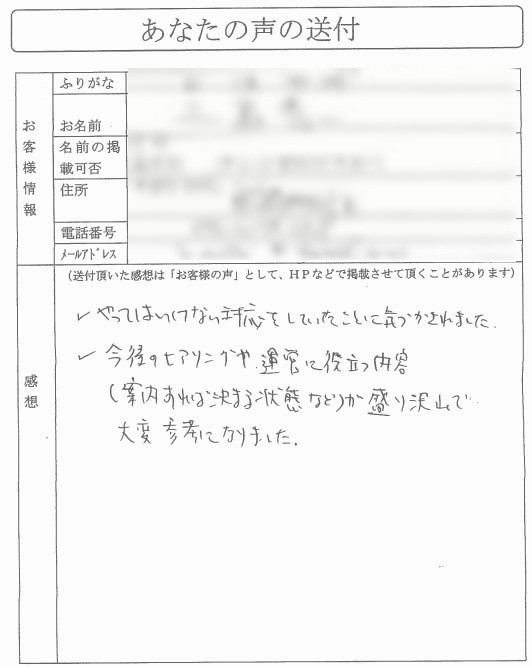 あなたの声の送付
お客様情報
ふりがな
お名前
名前の掲
載可否
住所
電話番号
ﾒｰﾙｱﾄﾞﾚｽ
感想
(送付頂いた感想は「お客様の声」として、HPなどで掲載させて頂くことがあります)
✓ やってはいけない対応をしていたことに気づかされました.
✓ 今後のヒアリングや運営に役立つ内容
(案内すれば決まる状態など)が盛り沢山で
大変参考になりました.